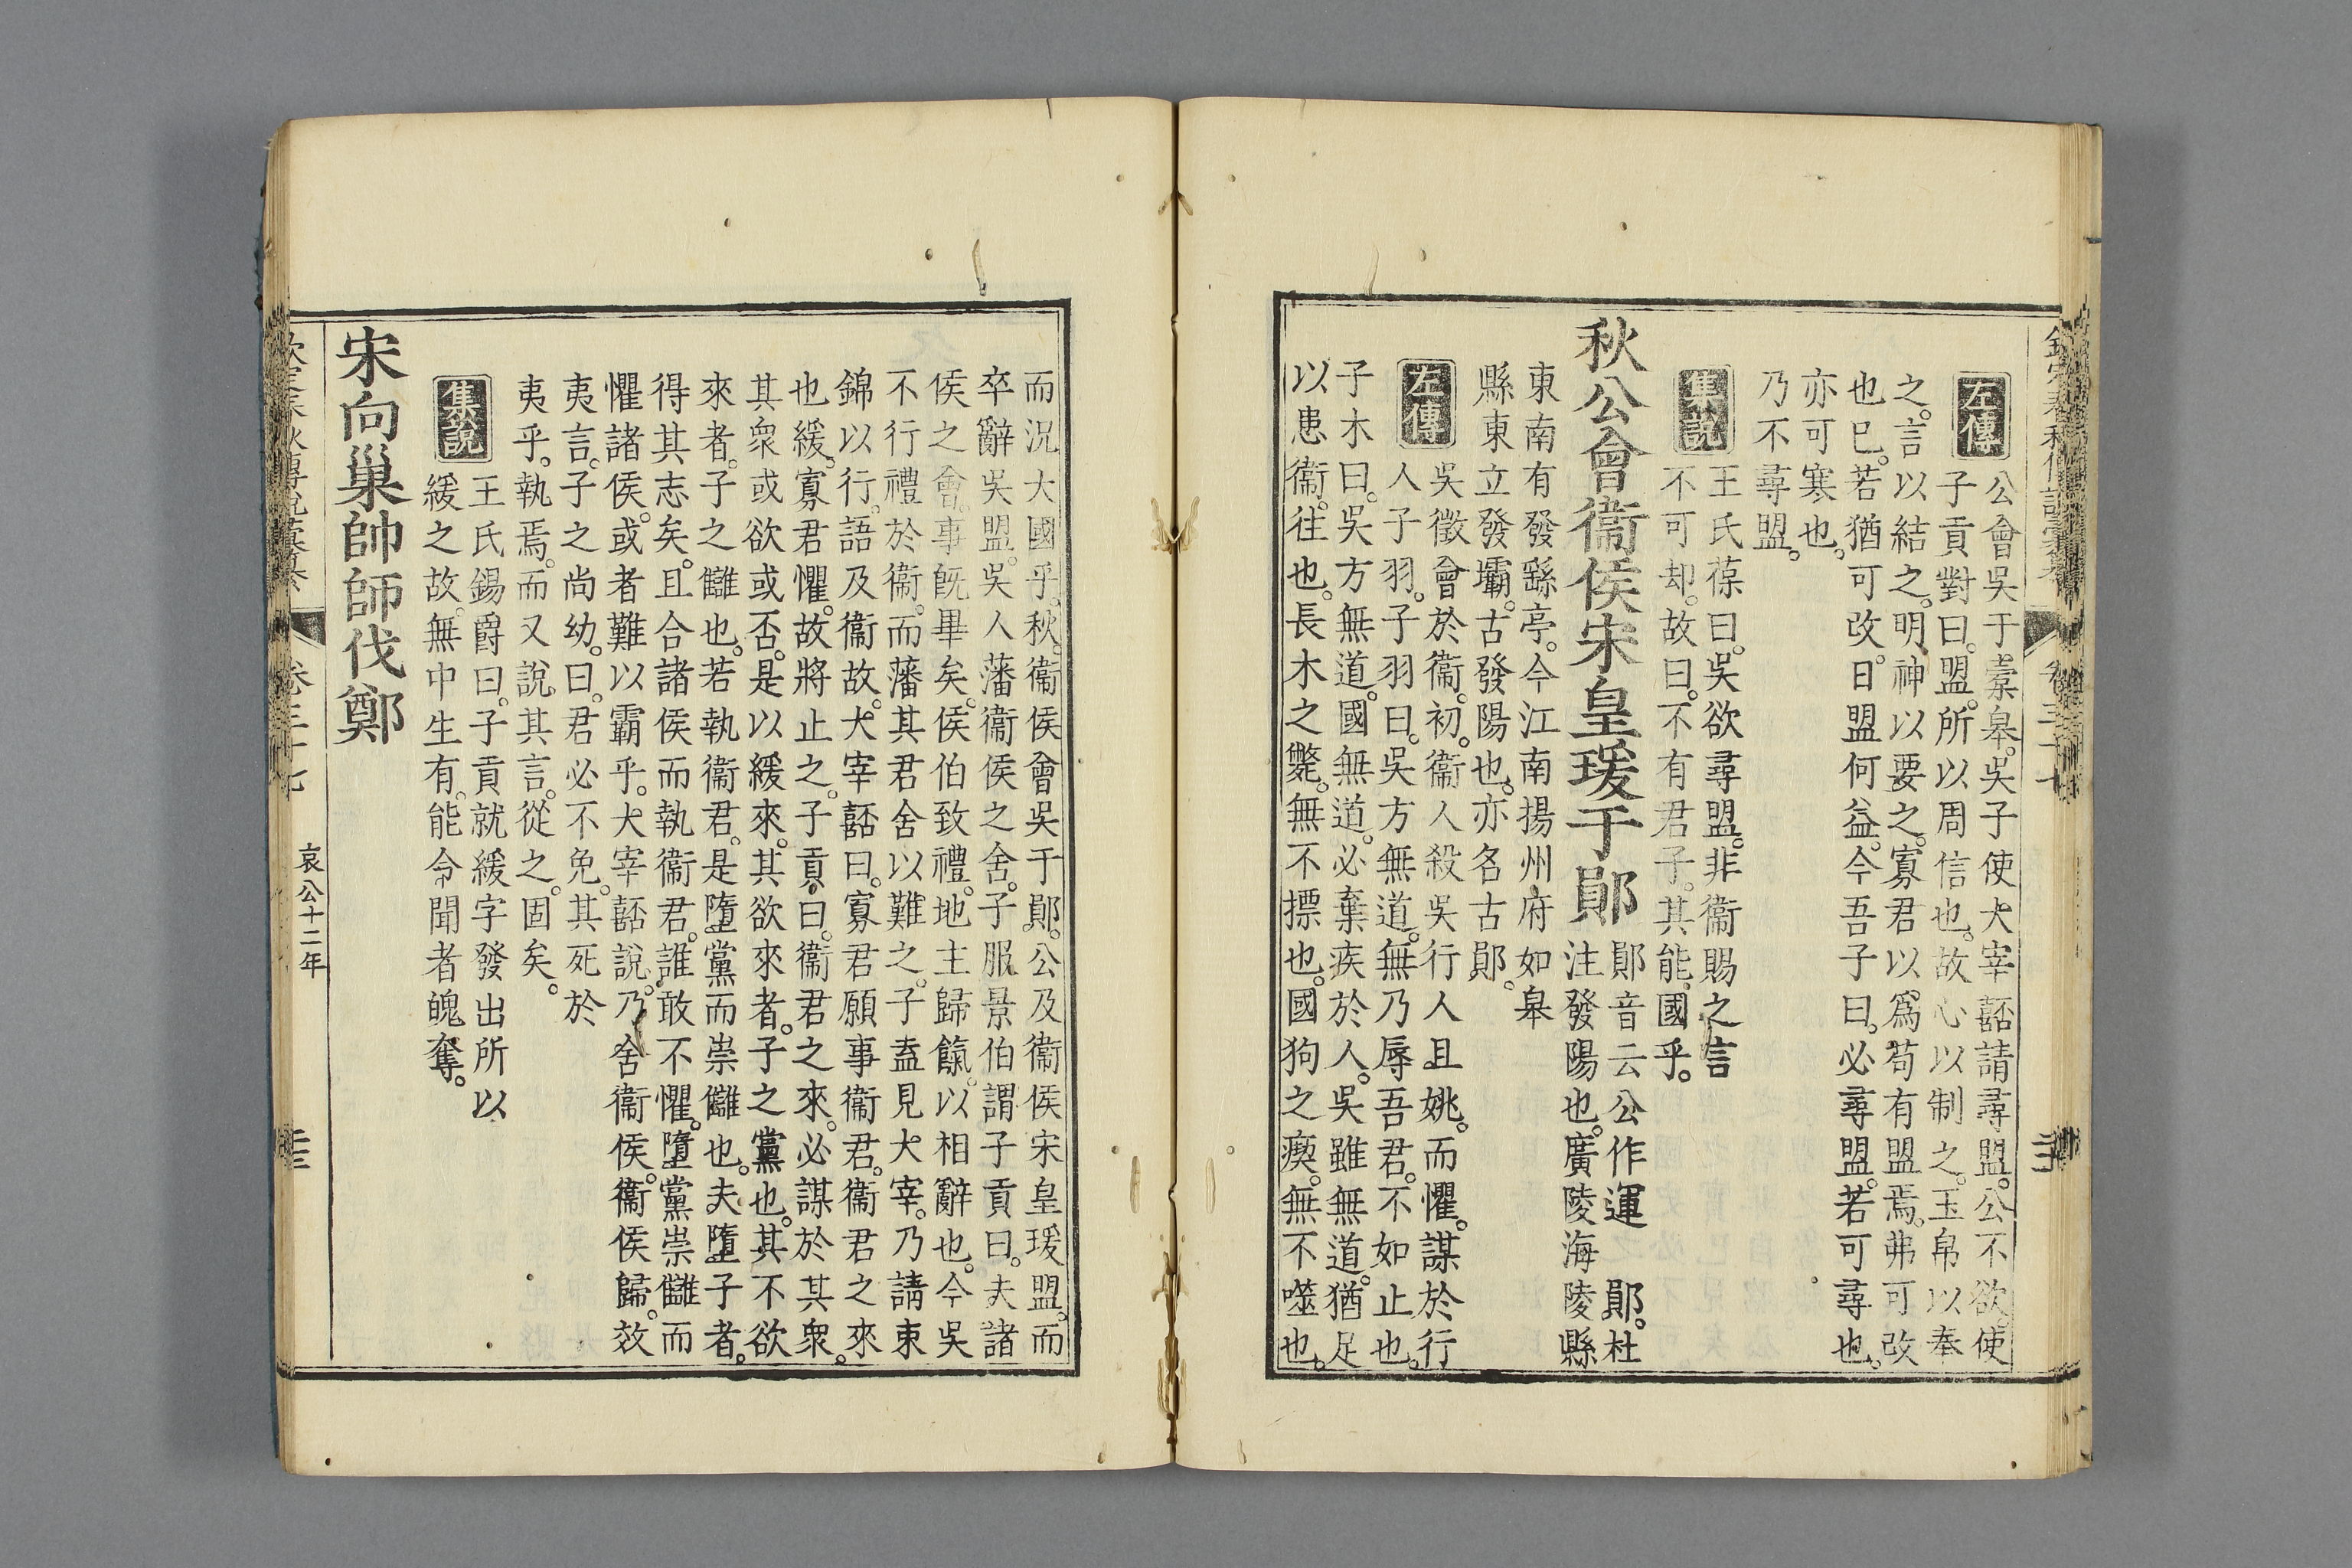 左傳
公會吳于橐皋。吳子使大宰嚭請尋盟。公不欲。使
子貢對曰。盟。所以周信也。故心以制之。玉帛以奉
之。言以結之。明神以要之。寡君以爲苟有盟焉。弗可改
也巳。若猶可改。日盟何益。今吾子曰。必尋盟。若可尋也。
亦可寒也。
乃不尋盟。
集說
王氏葆曰。吳欲尋盟。非衞賜之言
不可却。故曰。不有君子。其能國乎。
秋公會衞侯宋皇瑗于鄖
鄖音云公作運 鄖。杜
注發陽也。廣陵海陵縣
東南有發繇亭。今江南揚州府如皋
縣東立發壩。古發陽也。亦名古鄖。
左傳
吳徵會於衞。初。衞人殺吳行人且姚。而懼。謀於行
人子羽。子羽曰。吳方無道。無乃辱吾君。不如止也。
子木曰。吳方無道。國無道。必棄疾於人。吳雖無道。猶足
以患衞。往也。長木之斃。無不摽也。國狗之瘈。無不噬也。
而況大國乎。秋。衞侯會吳于鄖。公及衞侯宋皇瑗盟。而
卒辭吳盟。吳人藩衞侯之舍。子服景伯謂子貢曰。夫諸
侯之會。事旣畢矣。侯伯致禮。地主歸餼。以相辭也。今吳
不行禮於衞。而藩其君舍以難之。子盍見大宰。乃請束
錦以行。語及衞故。大宰嚭曰。寡君願事衞君。衞君之來
也緩。寡君懼。故將止之。子貢曰。衞君之來。必謀於其衆。
其衆或欲或否。是以緩來。其欲來者。子之黨也。其不欲
來者。子之讎也。若執衞君。是墮黨而崇讎也。夫墮子者。
得其志矣。且合諸侯而執衞君。誰敢不懼。墮黨崇讎而
懼諸侯。或者難以霸乎。大宰嚭說。乃舍衞侯。衞侯歸。效
夷言。子之尚幼。曰。君必不免。其死於
夷乎。執焉。而又說其言。從之。固矣。
集說
王氏錫爵曰。子貢就緩字發出所以
緩之故。無中生有。能令聞者魄奪。
宋向巢帥師伐鄭
卷三十七
哀公十二年